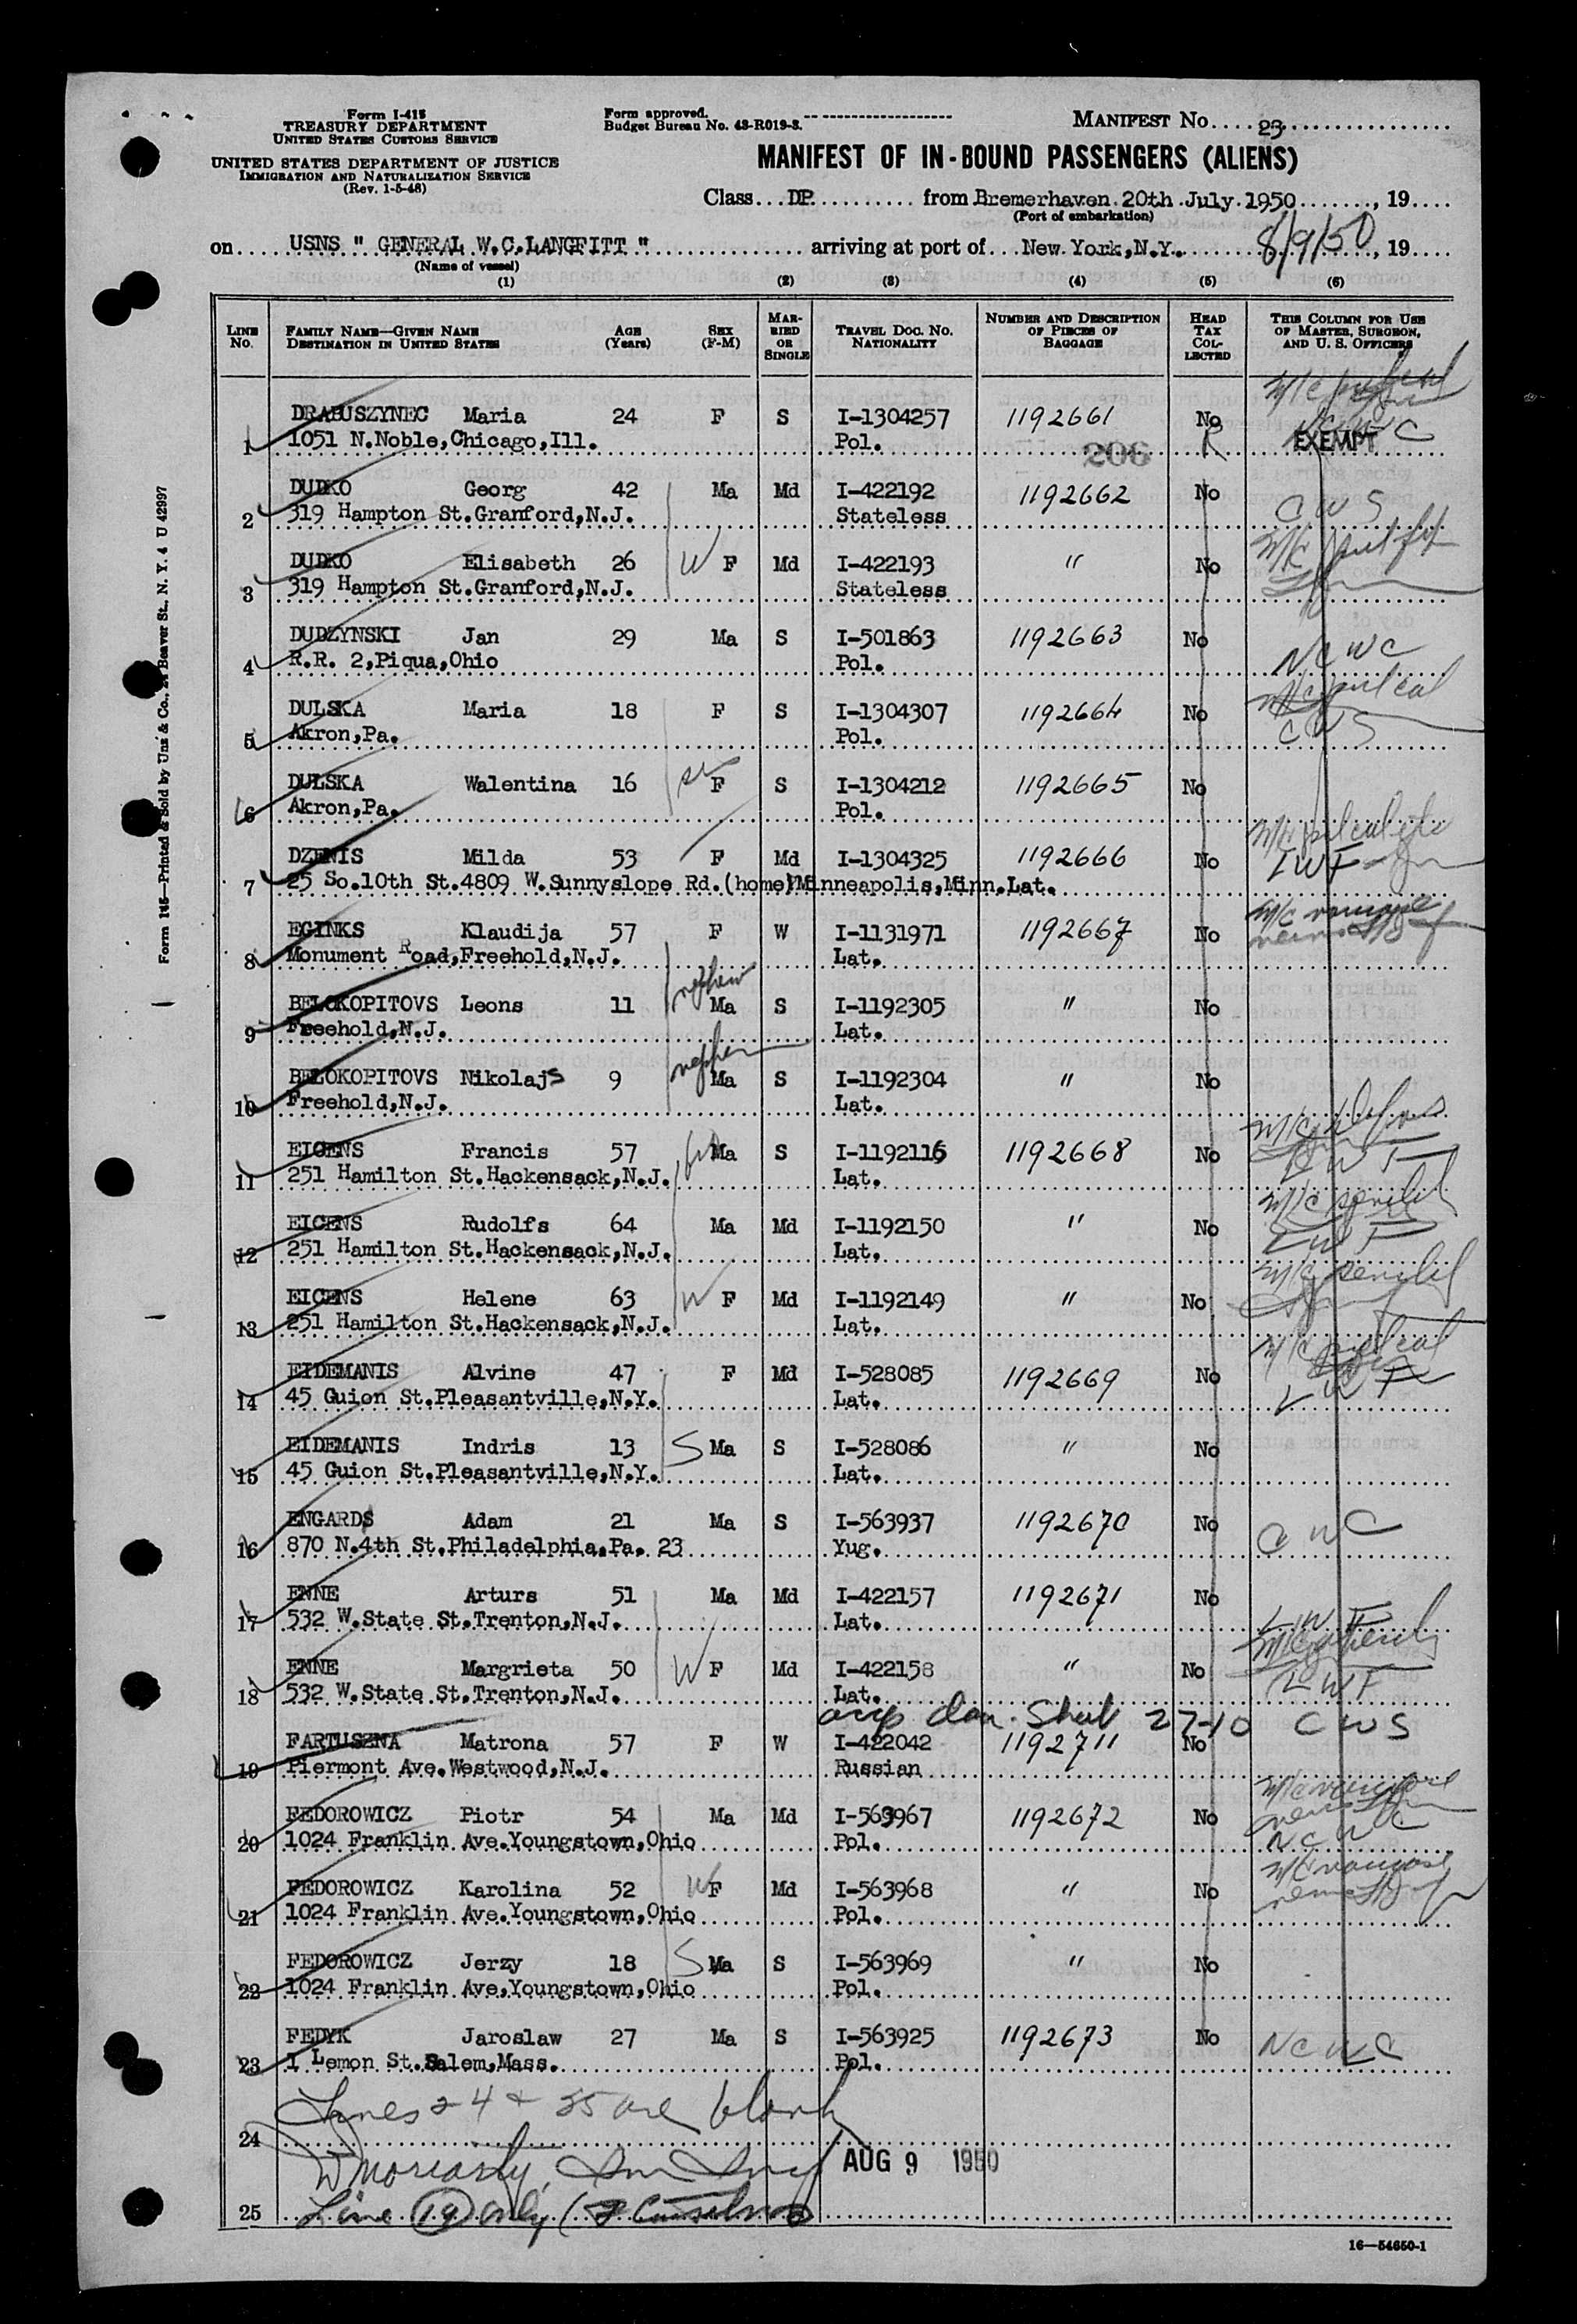 Form I-415
TREASURY DEPARTMENT
UNITED STATES CUSTOMS SERVICE
UNITED STATES DEPARTMENT OF JUSTICE
IMMIGRATION AND NATURALIZATION SERVICE
(Rev. 1-5-48)
Form approved.
Budget Bureau No. 43-R019-3.
MANIFEST No. 23
MANIFEST OF IN-BOUND PASSENGERS (ALIENS)
Class DP from Bremerhaven 20th July 1950, 19
(Port of embarkation)
on USNS " GENERAL W.C.LANGFITT " arriving at port of New York,N.Y. 8/9/50, 19
(Name of vessel)
(1) (2) (3) (4) (5) (6)
LINE No. FAMILY NAME—GIVEN NAME DESTINATION IN UNITED STATES AGE (Years) SEX (F-M) MARRIED OR SINGLE TRAVEL DOC. NO. NATIONALITY NUMBER AND DESCRIPTION OF PIECES OF BAGGAGE HEAD TAX COLLECTED THIS COLUMN FOR USE OF MASTER, SURGEON, AND U. S. OFFICERS
DRABUSZYNEC Maria 24 F S I-1304257 1192661 No NCWC
1 1051 N.Noble,Chicago,Ill. Pol. 206 EXEMPT
DUDKO Georg 42 Ma Md I-422192 1192662 No CWS
2 319 Hampton St.Granford,N.J. Stateless
DUDKO Elisabeth 26 W F Md I-422193 " No
3 319 Hampton St.Granford,N.J. Stateless
DUDZYNSKI Jan 29 Ma S I-501863 1192663 No NCWC
4 R.R. 2,Piqua,Ohio Pol.
DULSKA Maria 18 F S I-1304307 1192664 No CWS
5 Akron,Pa. Pol.
DULSKA Walentina 16 F S I-1304212 1192665 No
6 Akron,Pa. Pol.
DZENIS Milda 53 F Md I-1304325 1192666 No LWF
7 25 So.10th St.4809 W.Sunnyslope Rd.(home)Minneapolis,Minn.Lat.
EGINKS Klaudija 57 F W I-1131971 1192667 No
8 Monument Road,Freehold,N.J. Lat.
BELOKOPITOVS Leons 11 nephew Ma S I-1192305 " No
9 Freehold,N.J. Lat.
BELOKOPITOVS Nikolajs 9 nephew Ma S I-1192304 " No
10 Freehold,N.J. Lat.
EICENS Francis 57 Ma S I-1192116 1192668 No LWF
11 251 Hamilton St.Hackensack,N.J. Lat.
EICENS Rudolfs 64 Ma Md I-1192150 " No LWF
12 251 Hamilton St.Hackensack,N.J. Lat.
EICENS Helene 63 W F Md I-1192149 " No
13 251 Hamilton St.Hackensack,N.J. Lat.
EIDEMANIS Alvine 47 F Md I-528085 1192669 No LWF
14 45 Guion St.Pleasantville,N.Y. Lat.
EIDEMANIS Indris 13 S Ma S I-528086 " No
15 45 Guion St.Pleasantville,N.Y. Lat.
ENGARDS Adam 21 Ma S I-563937 1192670 No CWC
16 870 N.4th St.Philadelphia,Pa. 23 Yug.
ENNE Arturs 51 Ma Md I-422157 1192671 No LWF
17 532 W.State St.Trenton,N.J. Lat.
ENNE Margrieta 50 W F Md I-422158 " No LWF
18 532 W.State St.Trenton,N.J. Lat.
27-10 CWS
FARTUSZNA Matrona 57 F W I-422042 1192711 No
19 Piermont Ave.Westwood,N.J. Russian
FEDOROWICZ Piotr 54 Ma Md I-563967 1192672 No NCWC
20 1024 Franklin Ave.Youngstown,Ohio Pol.
FEDOROWICZ Karolina 52 W F Md I-563968 " No
21 1024 Franklin Ave.Youngstown,Ohio Pol.
FEDOROWICZ Jerzy 18 S Ma S I-563969 " No
22 1024 Franklin Ave,Youngstown,Ohio Pol.
FEDYK Jaroslaw 27 Ma S I-563925 1192673 No NCWC
23 1 Lemon St.Salem,Mass. Pol.
Lines 24 + 25 are blank
24
W Moriarty, AUG 9 1950
25 Line 19 only
16—54650-1
Form 145—Printed & Sold by Unz & Co., Beaver St., N. Y. 4 U 42997